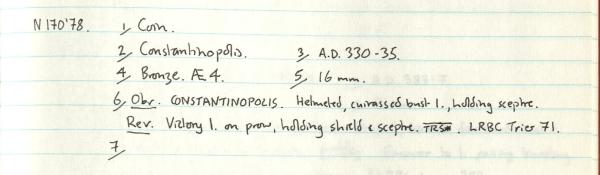 N 170'78. 1, Coin.
2, Constantinopolis. 3, A.D. 330-35.
4, Bronze. Æ 4. 5, 16 mm.
6, Obv. CONSTANTINOPOLIS. Helmeted, cuirassed bust l., holding sceptre.
Rev. Victory l. on prow, holding shield & sceptre. LRBC Trier 71.
7,